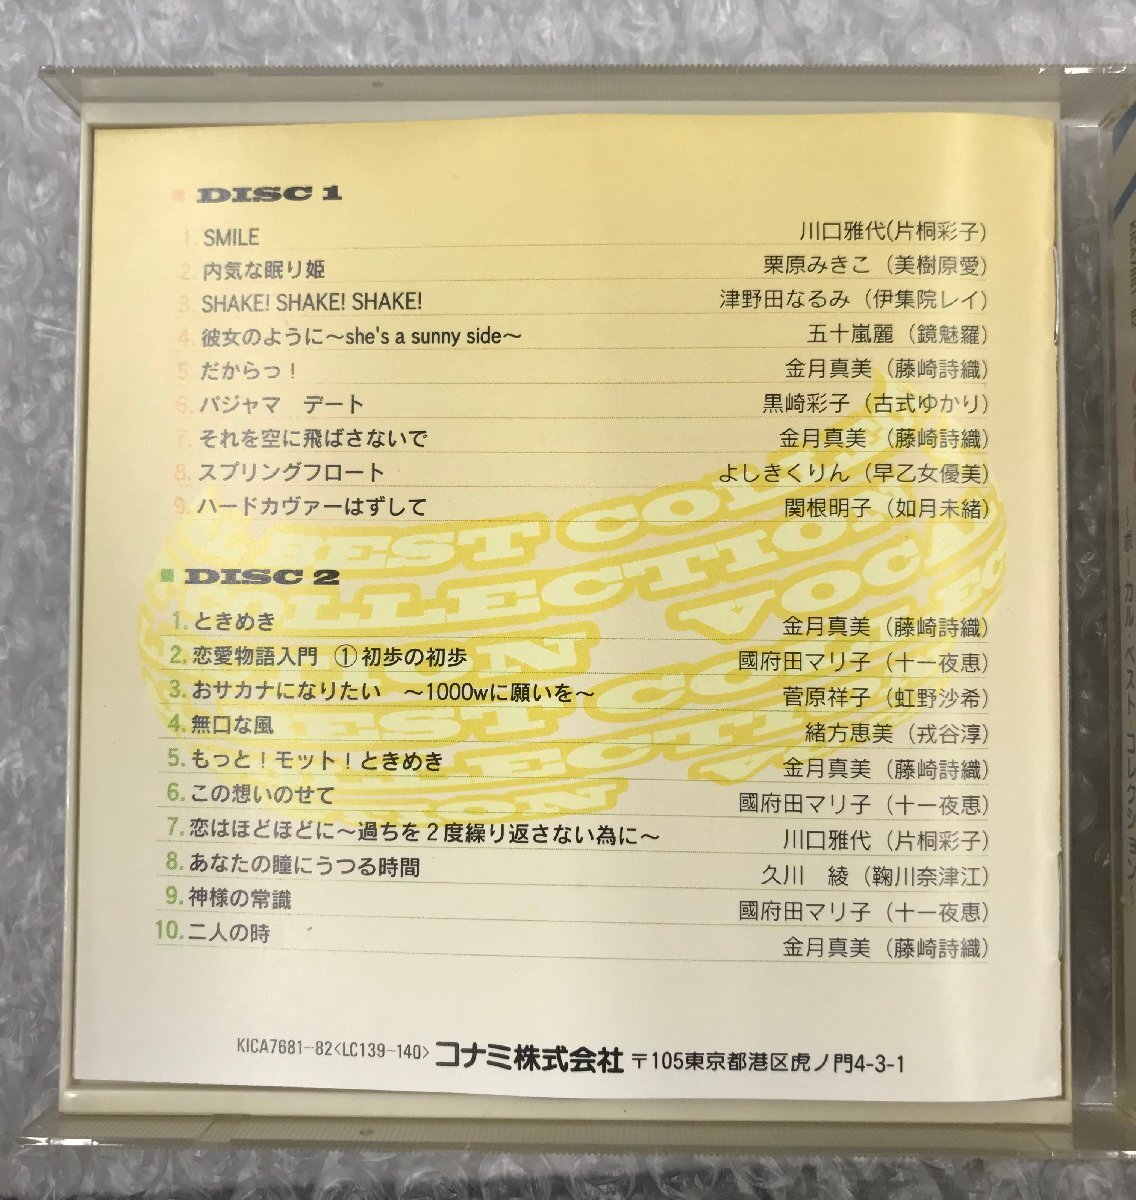 DISC 1
1. SMILE 川口雅代(片桐彩子)
2. 内気な眠り姫 栗原みきこ(美樹原愛)
3. SHAKE! SHAKE! SHAKE! 津野田なるみ(伊集院レイ)
4. 彼女のように～she's a sunny side～ 五十嵐麗(鏡魅羅)
5. だからっ! 金月真美(藤崎詩織)
6. パジャマ デート 黒崎彩子(古式ゆかり)
7. それを空に飛ばさないで 金月真美(藤崎詩織)
8. スプリングフロート よしきくりん(早乙女優美)
9. ハードカヴァーはずして 関根明子(如月未緒)
DISC 2
1. ときめき 金月真美(藤崎詩織)
2. 恋愛物語入門 ①初歩の初歩 國府田マリ子(十一夜恵)
3. おサカナになりたい ～1000wに願いを～ 菅原祥子(虹野沙希)
4. 無口な風 緒方恵美(戎谷淳)
5. もっと!モット!ときめき 金月真美(藤崎詩織)
6. この想いのせて 國府田マリ子(十一夜恵)
7. 恋はほどほどに～過ちを2度繰り返さない為に～ 川口雅代(片桐彩子)
8. あなたの瞳にうつる時間 久川 綾(鞠川奈津江)
9. 神様の常識 國府田マリ子(十一夜恵)
10. 二人の時 金月真美(藤崎詩織)
KICA7681-82<LC139-140> コナミ株式会社 〒105東京都港区虎ノ門4-3-1
BEST COLLECTION VOCAL
～ボーカル・ベスト・コレクション～